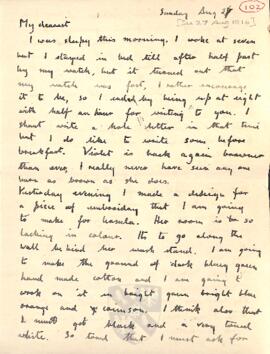 102
Sunday Aug 27
[Su 27 Aug 1916]
My dearest
I was sleepy this morning. I woke at seven
but I stayed in bed till after half past
by my watch, but it turned out that
my watch was fast, I rather encourage
it to be, so I ended by being up at eight
with half an hour for writing to you. I
shant write a whole letter in that time
but I do like to write some before
breakfast. Violet is back again browner
than ever, I really never have seen any one
as brown as she does.
Yesterday evening I made a design for
a piece of embroidery that I am going
to make for Ursula. Her room is so
lacking in colour. Its to go along the
wall behind her wash stand. I am going
to make the ground of dark blue green
hand made cotton and I am going to
work on it in bright green bright blue
orange and crimson. I think also that
I must get black and a very tawed
white. So tawd that I must ask for